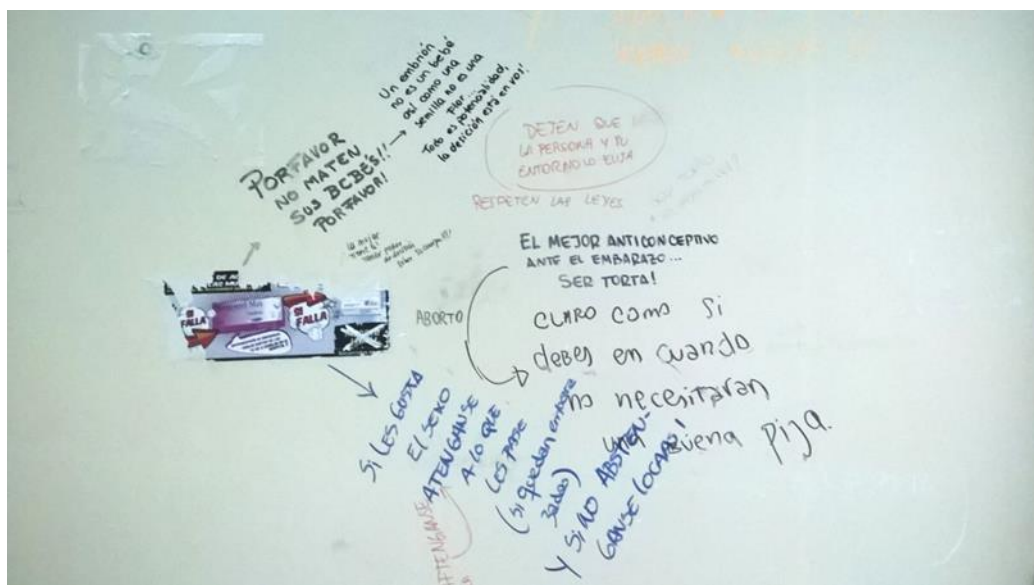 PORFAVOR
NO MATEN
SUS BEBÉS!!
PORFAVOR!
Un embrión
no es un bebé
así como una
semilla no es una
Flor...
Todo es potencialidad,
la decisión está en vos!
DEJEN QUE
LA PERSONA Y TU
ENTORNO LO ELIJA
RESPETEN LAS LEYES
EL MEJOR ANTICONCEPTIVO
ANTE EL EMBARAZO...
SER TORTA!
CLARO como si
debes en cuando
no necesitaran
una buena pija.
ABORTO
SI
FALLA
SI
FALLA
Si LES GUSTA
El SEXO
ATENGANSE
A lo QUE
LES PASE
(si quedan embara
zadas)
Y Si NO ABSTIEN-
GANSE LOCAAAS!
ATENGANSE